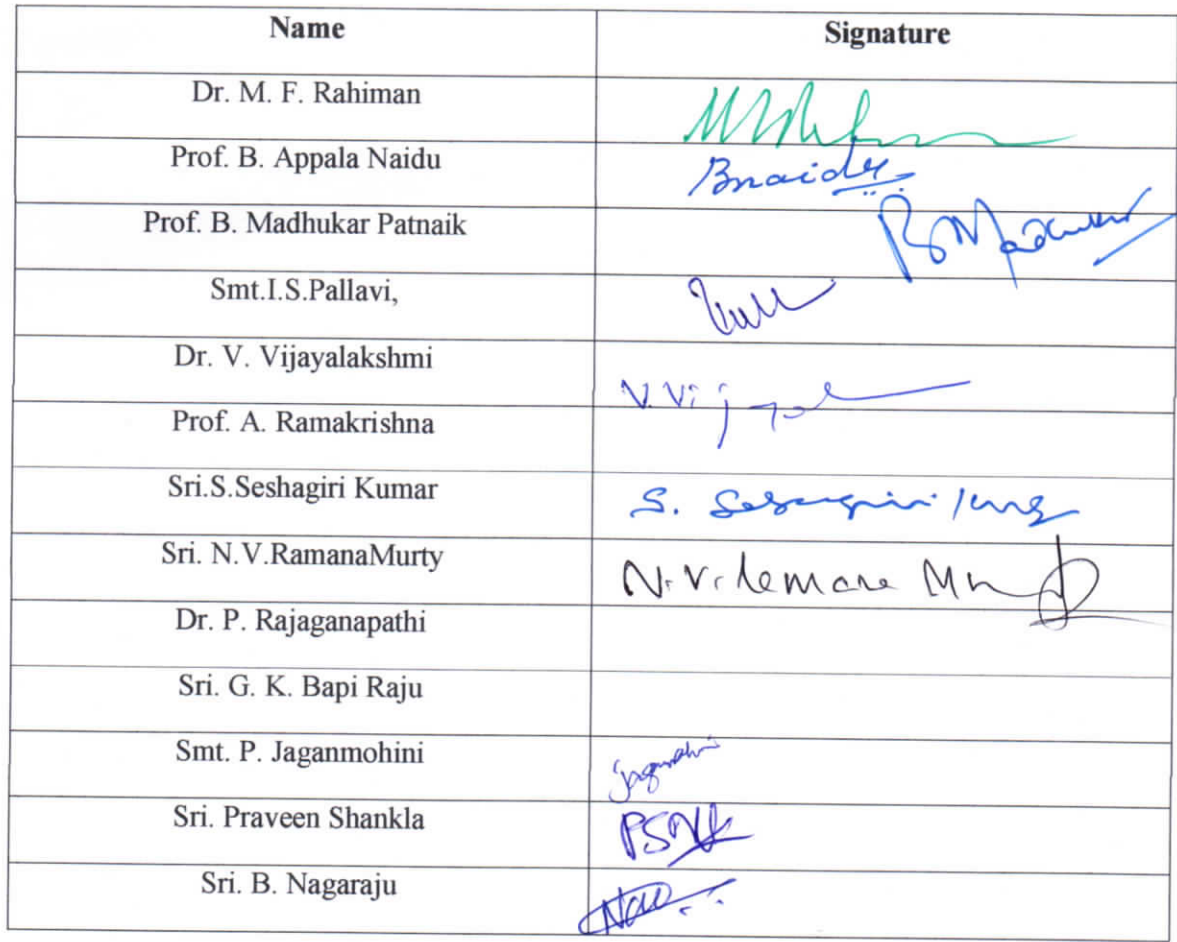 Name Signature
Dr. M. F. Rahiman
Prof. B. Appala Naidu Bnaidu
Prof. B. Madhukar Patnaik B Madhukar
Smt.I.S.Pallavi,
Dr. V. Vijayalakshmi V. Vijaya
Prof. A. Ramakrishna
Sri.S.Seshagiri Kumar S. Seshagiri
Sri. N.V.RamanaMurty N. V. Ramana
Dr. P. Rajaganapathi
Sri. G. K. Bapi Raju
Smt. P. Jaganmohini
Sri. Praveen Shankla
Sri. B. Nagaraju